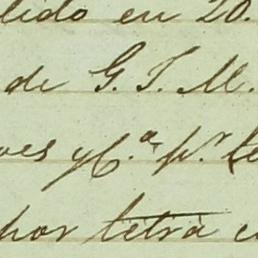 lido en 20.
de G. T. M.
ves y C.ª p.r
por letra